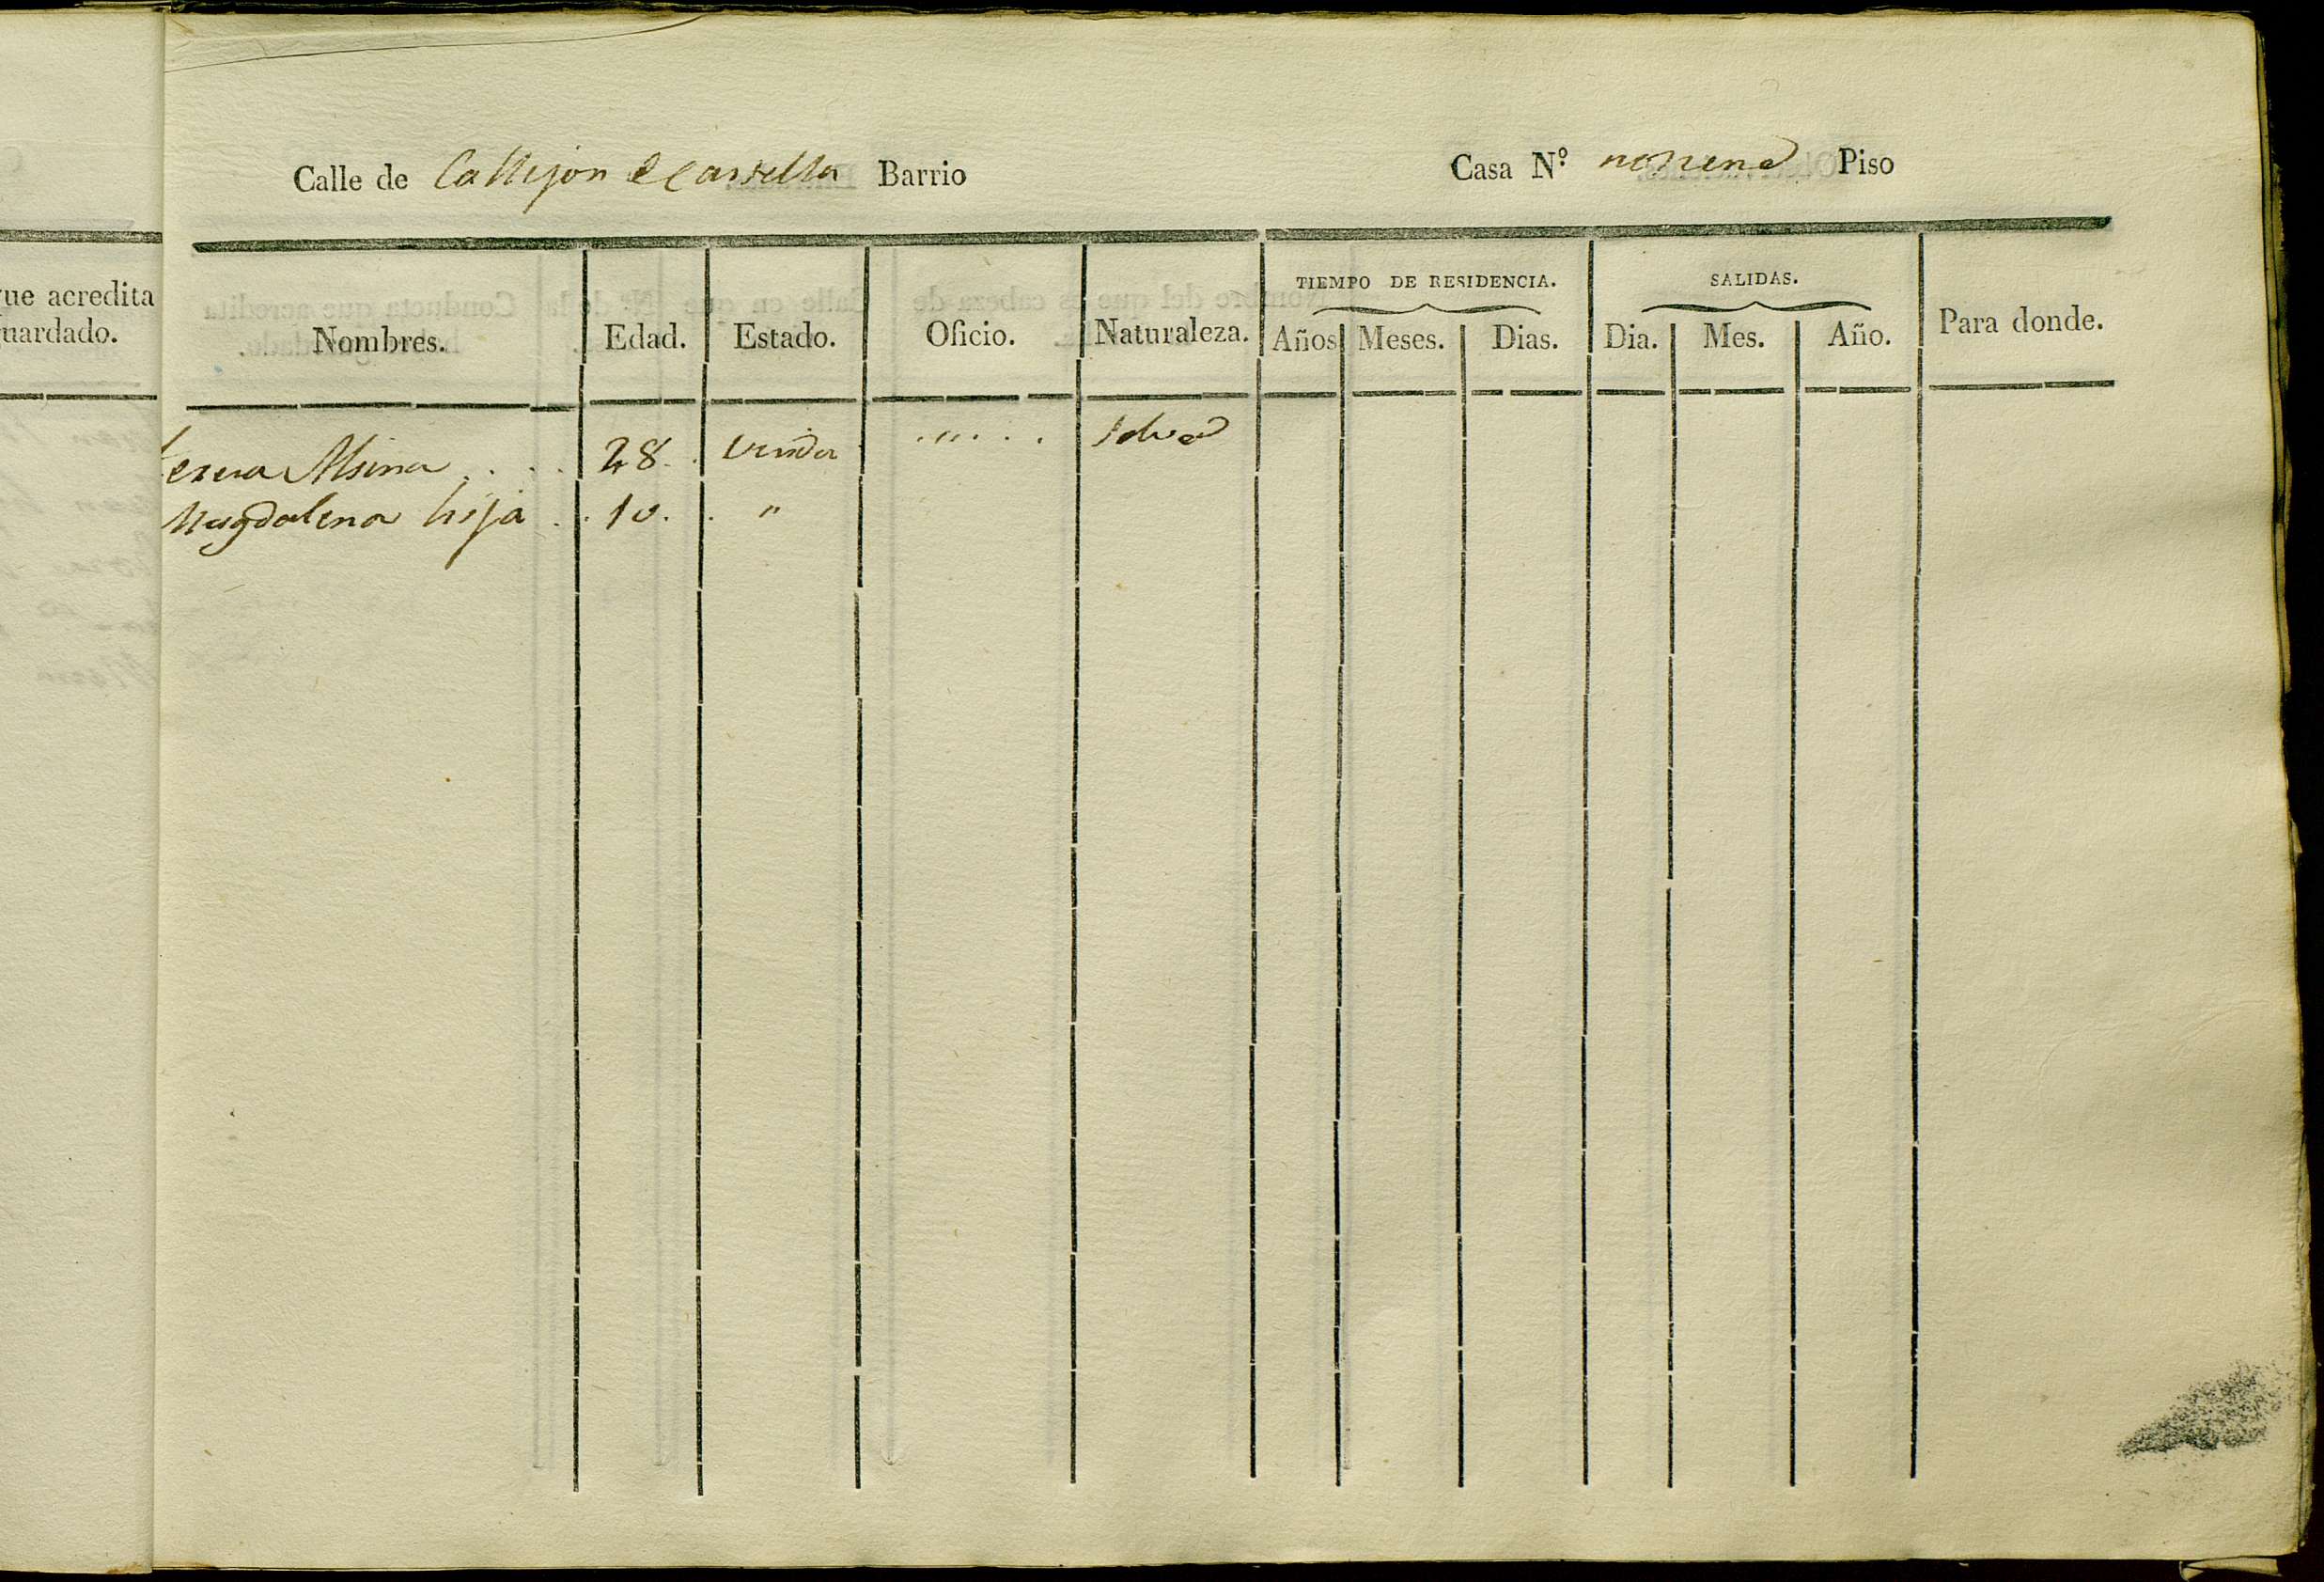 que acredita
guardado.
Calle de Callejon de Barrio
Casa Nº no tiene Piso
Nombres. Edad. Estado. Oficio. Naturaleza. TIEMPO DE RESIDENCIA. SALIDAS. Para donde.
Años Meses. Dias. Dia. Mes. Año.
teresa Alsina . . . 28. Viuda . " . . .
Magdalena hija . . 10. . "